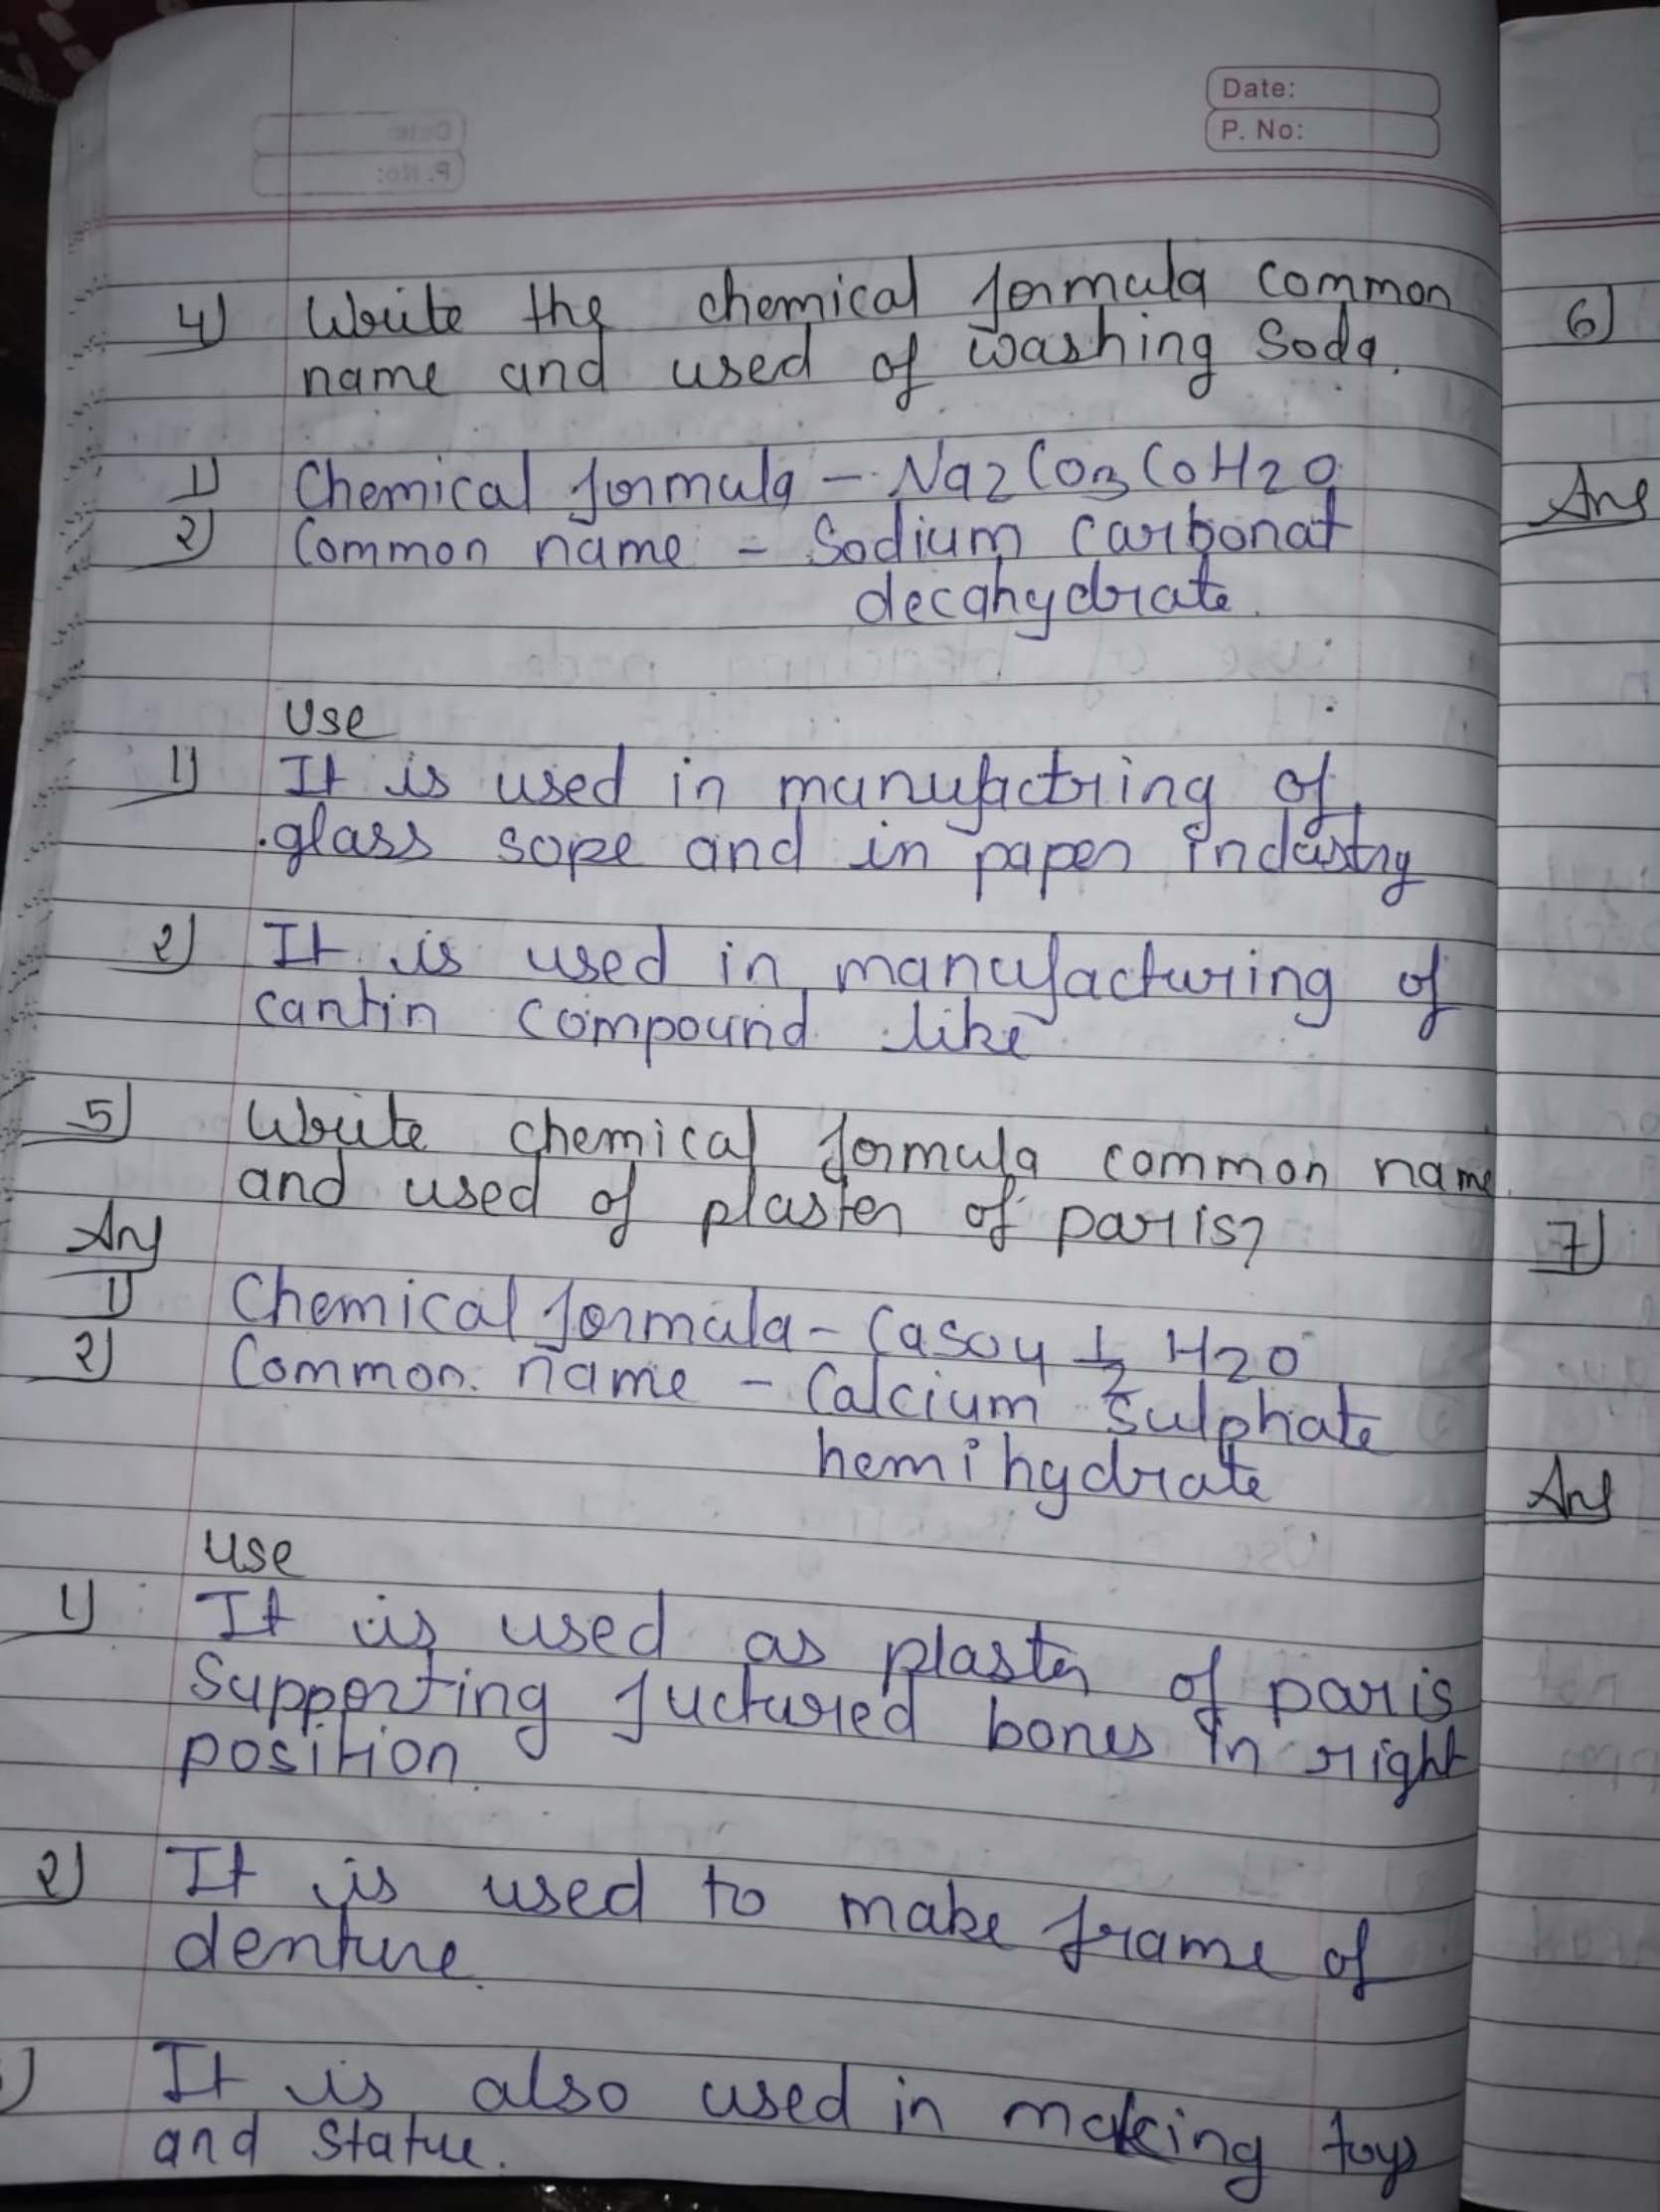 Date:
P. No:
4) Write the chemical formula common
name and used of washing Soda.
1) Chemical formula - Na2CO3COH2O
2) Common name - Sodium carbonat
decahydrate.
Use
1) It is used in manufactring of
glass sope and in paper industry
2) It is used in manufacturing of
compound like
5) Write chemical formula common name
and used of plaster of paris?
Ans
1) Chemical formula - CaSO4 1/2 H2O
2) Common name - Calcium Sulphate
hemihydrate
use
1) It is used as plaster of paris
Supporting fuctured bones in right
position.
2) It is used to make frame of
denture.
) It is also used in making toys
and statue.
6)
Ans
7)
Ans